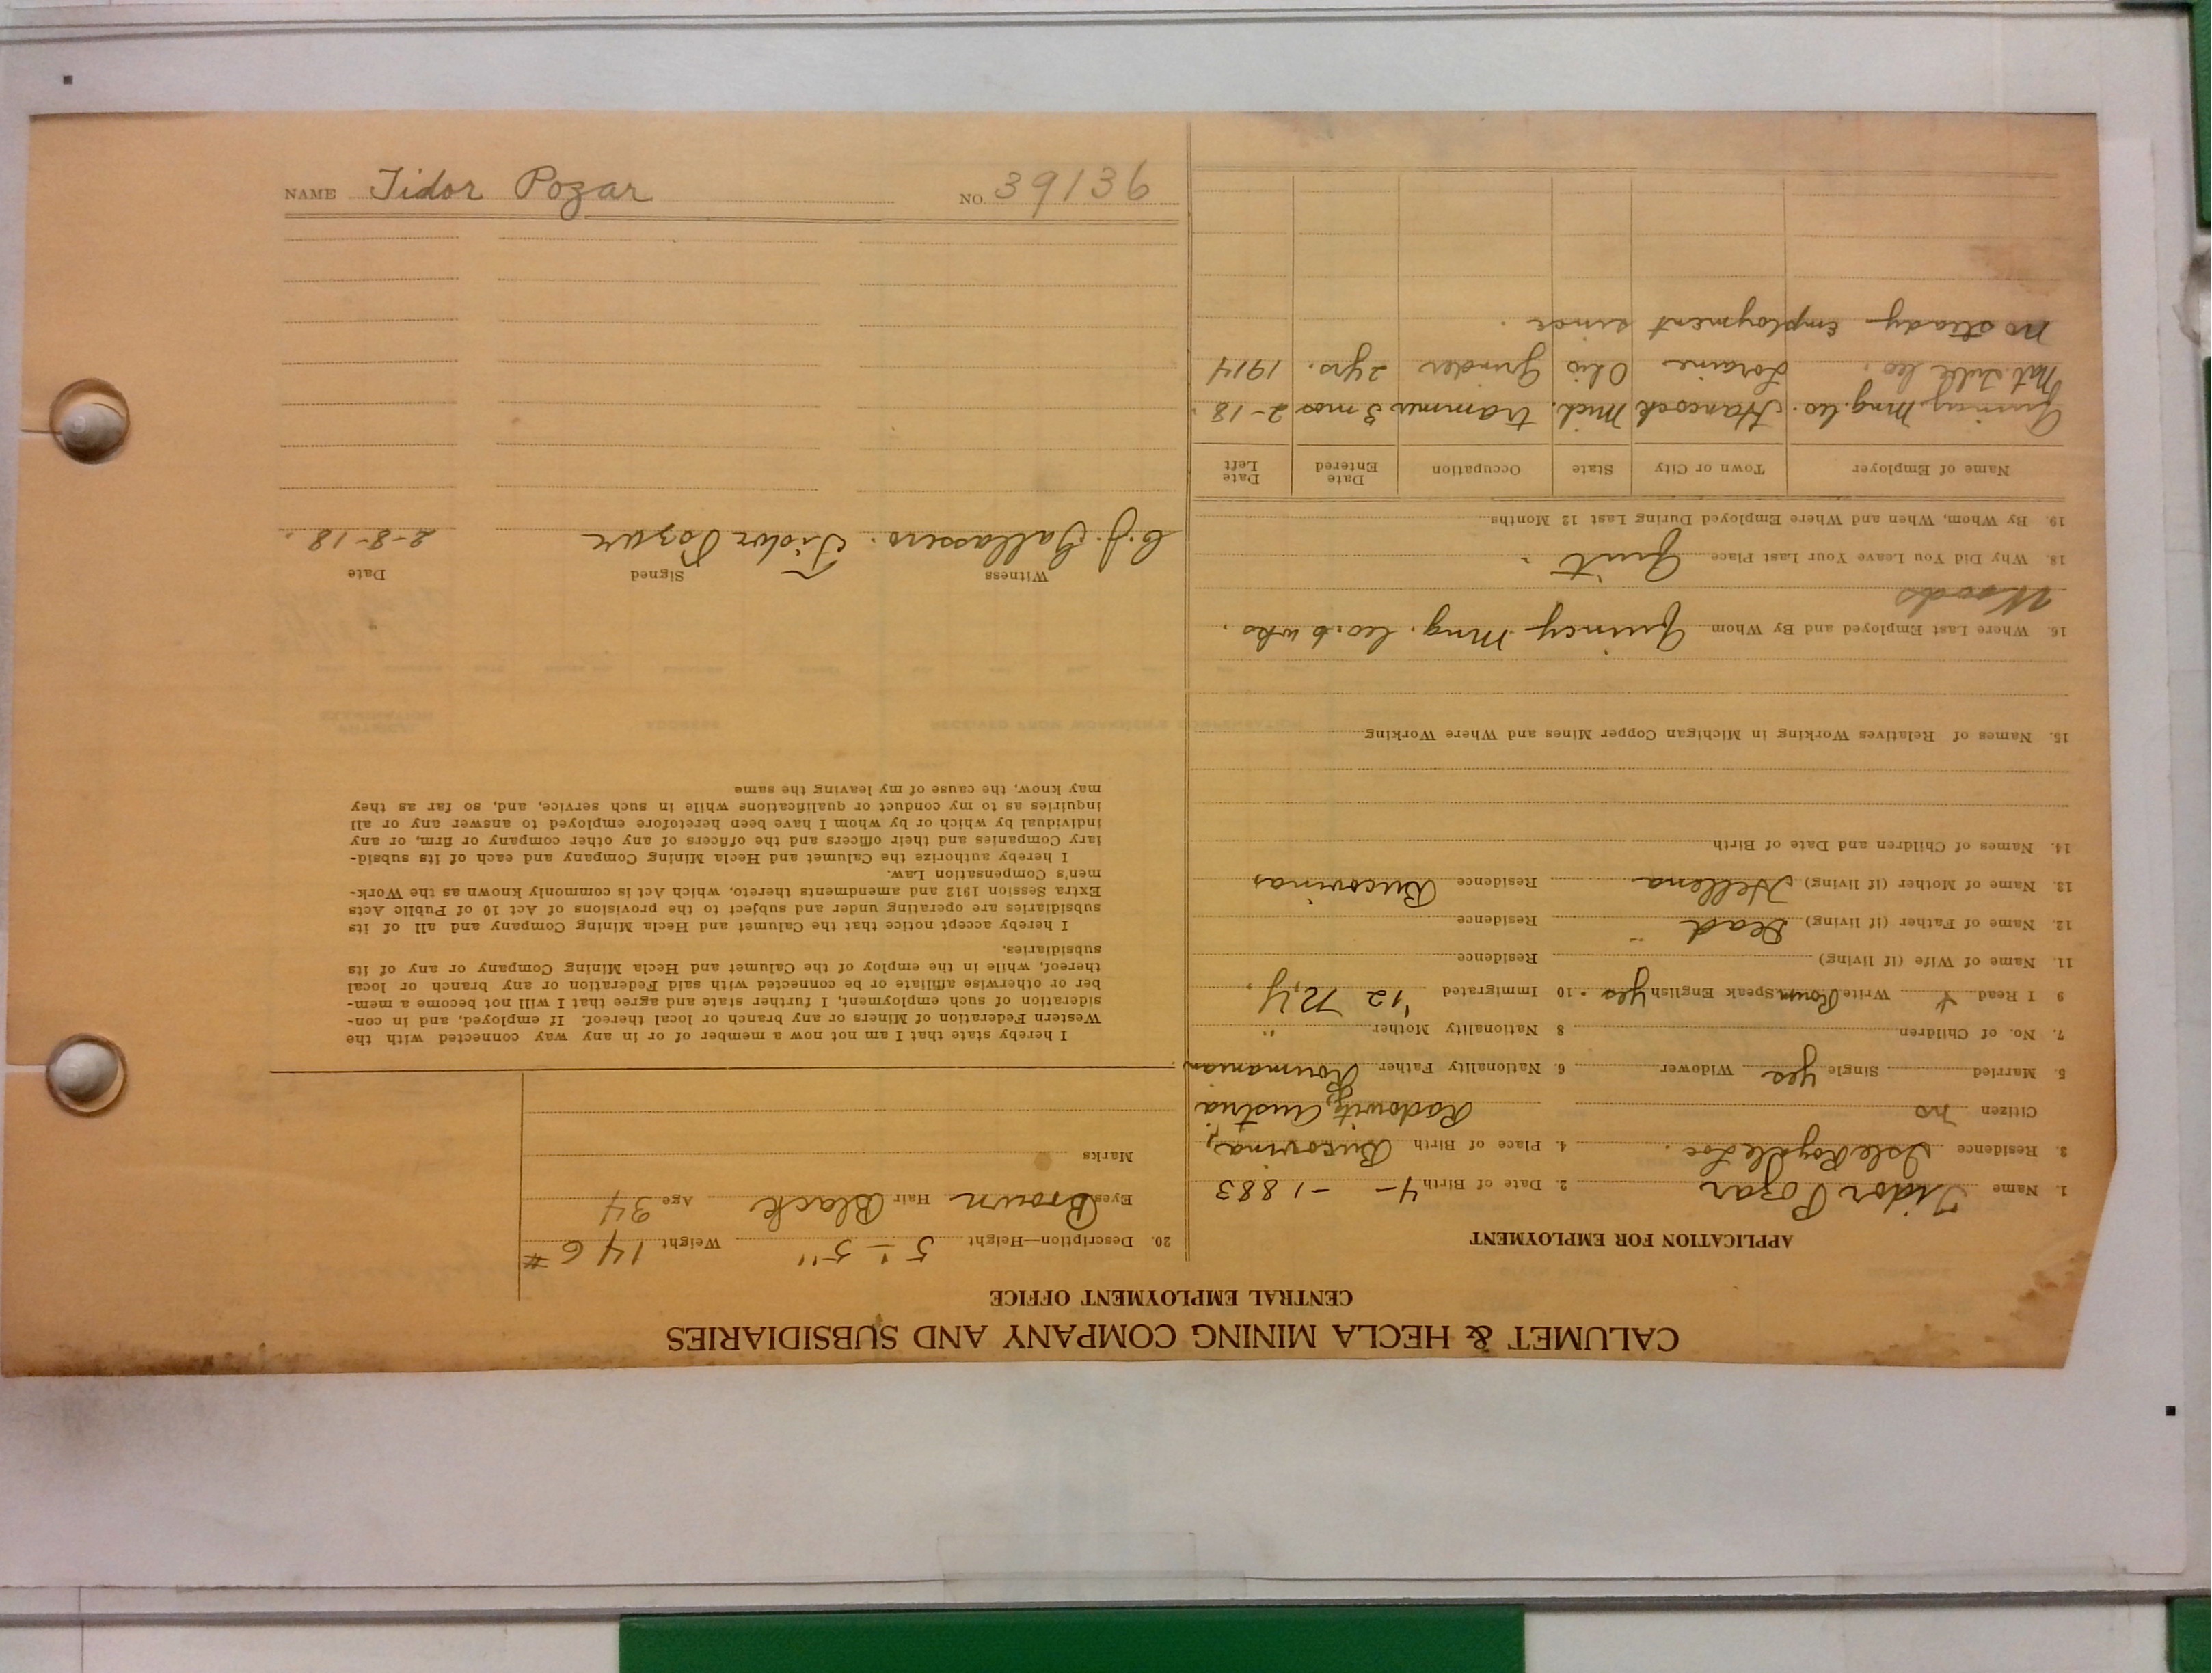 CALUMET & HECLA MINING COMPANY AND SUBSIDIARIES
CENTRAL EMPLOYMENT OFFICE
APPLICATION FOR EMPLOYMENT
1. Name Tidor Pozar 2. Date of Birth 4- -1883
3. Residence Isle Royale Loc. 4. Place of Birth Bucovina,
Citizen no Radowitz, Austria
5. Married Single yes Widower 6. Nationality Father Roumanian
7. No. of Children 8 Nationality Mother "
9 I Read & Write Roum Speak English yes. 10 Immigrated '12 N.Y.
11. Name of Wife (if living) Residence
12. Name of Father (if living) Dead Residence
13. Name of Mother (if living) Hellena Residence Bucovinas
14. Names of Children and Date of Birth
15. Names of Relatives Working in Michigan Copper Mines and Where Working
16. Where Last Employed and By Whom Quincy Mng. Co. 6 wks.
Woods
18. Why Did You Leave Your Last Place Quit.
19. By Whom, When and Where Employed During Last 12 Months
Name of Employer Town or City State Occupation Date Entered Date Left
Quincy Mng. Co. Hancock Mich. trammer 3 mos 2-18.
Nat. Co. Loraine Ohio Grinder 2 yrs. 1914
no steady employment since.
20. Description—Height 5'-5" Weight 146#
Eyes Brown Hair Black Age 34
Marks
I hereby state that I am not now a member of or in any way connected with the
Western Federation of Miners or any branch or local thereof. If employed, and in con-
sideration of such employment, I further state and agree that I will not become a mem-
ber or otherwise affiliate or be connected with said Federation or any branch or local
thereof, while in the employ of the Calumet and Hecla Mining Company or any of its
subsidiaries.
I hereby accept notice that the Calumet and Hecla Mining Company and all of its
subsidiaries are operating under and subject to the provisions of Act 10 of Public Acts
Extra Session 1912 and amendments thereto, which Act is commonly known as the Work-
men's Compensation Law.
I hereby authorize the Calumet and Hecla Mining Company and each of its subsid-
iary Companies and their officers and the officers of any other company or firm, or any
individual by which or by whom I have been heretofore employed to answer any or all
inquiries as to my conduct or qualifications while in such service, and, so far as they
may know, the cause of my leaving the same
Witness Signed Date
C.J. Tidor Pozar 2-8-18.
NAME Tidor Pozar NO. 39136